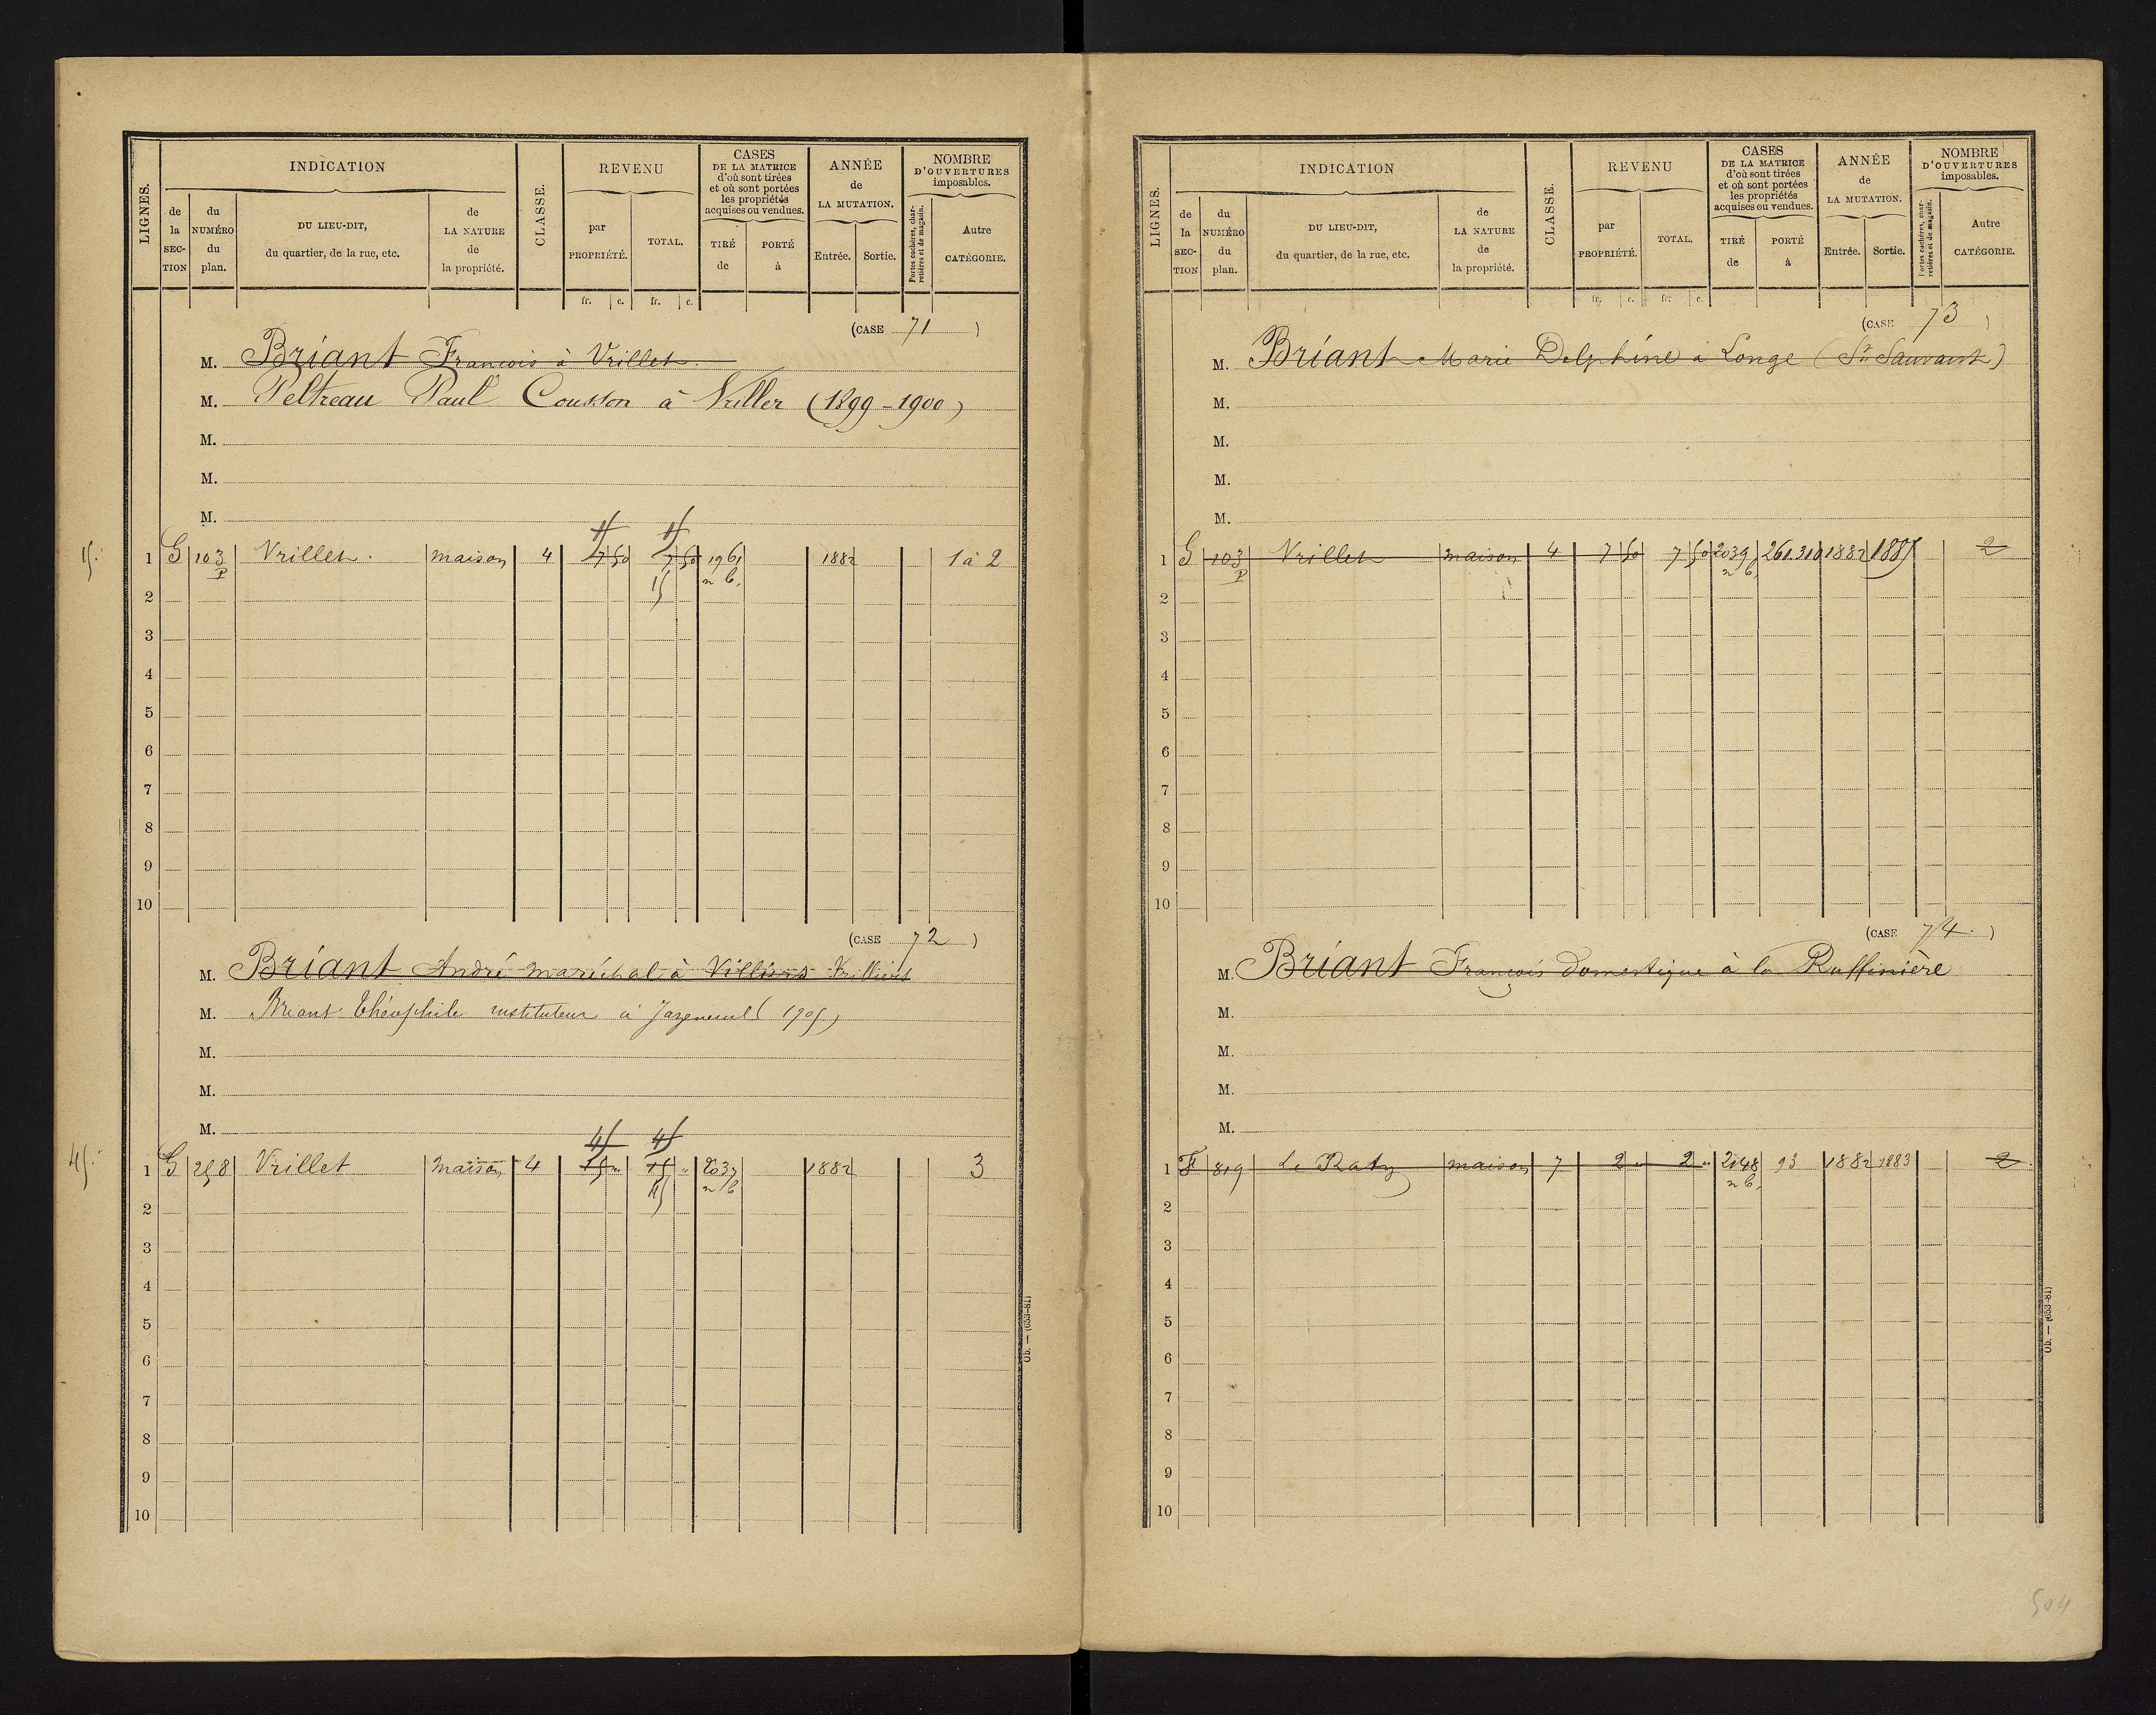 LIGNES.
INDICATION
de la SECTION
du NUMÉRO du plan.
DU LIEU-DIT, du quartier, de la rue, etc.
de LA NATURE de la propriété.
CLASSE.
REVENU
par PROPRIÉTÉ.
TOTAL.
CASES DE LA MATRICE d'où sont tirées et où sont portées les propriétés acquises ou vendues.
TIRÉ de
PORTÉ à
ANNÉE de LA MUTATION.
Entrée.
Sortie.
NOMBRE D'OUVERTURES imposables.
Portes cochères, charretières et de magasin.
Autre CATÉGORIE.
fr. c. fr. c.
(CASE 71)
M. Briant François à Vrillet.
M. Peltreau Paul Cousson à Vriller (1899-1900)
M.
M.
M.
15 15
15. 1 G 103 P Vrillet. maison 4 7 50 7 50 1961 n b. 1882 1 à 2
15
2
3
4
5
6
7
8
9
10
(CASE 72)
M. Briant André maréchal à Villiers Vrilliers
M. Briant Théophile instituteur à Jazeneuil (1905)
M.
M.
M.
45 45
45. 1 G 258 Vrillet maison 4 15 " 15 " 2037 n b 1882 3
45
2
3
4
5
6
7
8
9
10
Ob. — (653-81)
LIGNES.
INDICATION
de la SECTION
du NUMÉRO du plan.
DU LIEU-DIT, du quartier, de la rue, etc.
de LA NATURE de la propriété.
CLASSE.
REVENU
par PROPRIÉTÉ.
TOTAL.
CASES DE LA MATRICE d'où sont tirées et où sont portées les propriétés acquises ou vendues.
TIRÉ de
PORTÉ à
ANNÉE de LA MUTATION.
Entrée.
Sortie.
NOMBRE D'OUVERTURES imposables.
Portes cochères, charretières et de magasin.
Autre CATÉGORIE.
fr. c. fr. c.
(CASE 73)
M. Briant Marie Delphine à Longe (St Sauvant)
M.
M.
M.
M.
1 G 103 P Vrillet maison 4 7 50 7 50 2039 n b. 261.310 1882 1885 2
2
3
4
5
6
7
8
9
10
(CASE 74.)
M. Briant François Domestique à la Ruffinière
M.
M.
M.
M.
1 F 819 Le Raty maison 7 2 " 2 " 2148 n b. 93 1882 1883 2
2
3
4
5
6
7
8
9
10
Ob. — (653-81)
504